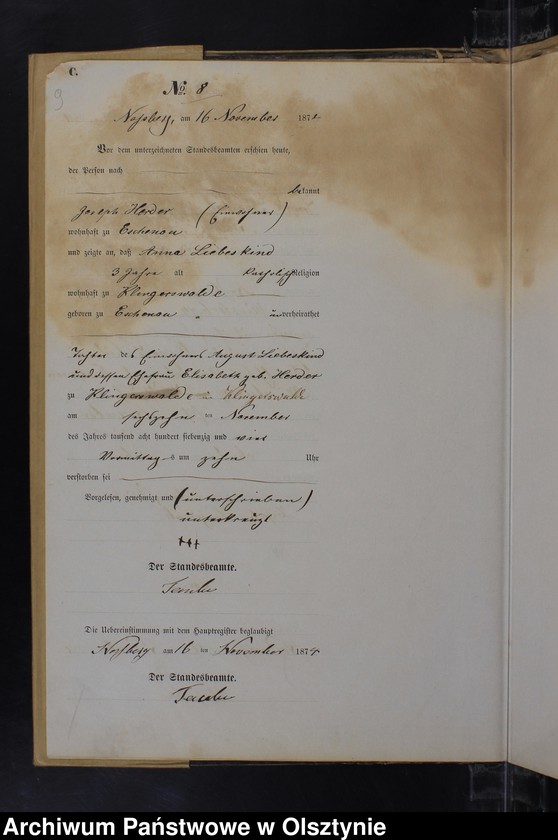 C.
9
No. 8
Noßberg, am 16 November 1874
Vor dem unterzeichneten Standesbeamten erschien heute,
der Person nach
bekannt
Joseph Herder (Einwohner)
wohnhaft zu Eschenau
und zeigte an, daß Anna Liebeskind
3 Jahre alt Katholisch Religion
wohnhaft zu Klingerswalde
geboren zu Eschenau unverheirathet
Tochter des Einwohners August Liebeskind
und dessen Ehefrau Elisabeth geb. Herder
zu Klingerswalde Klingerswalde
am sechszehn ten November
des Jahres tausend acht hundert siebenzig und vier
Vormittag s um zehn Uhr
verstorben sei
Vorgelesen, genehmigt und (unterschrieben)
unterkreuzt
+++
Der Standesbeamte.
Die Uebereinstimmung mit dem Hauptregister beglaubigt
Noßberg am 16 ten November 1874
Der Standesbeamte.
Archiwum Państwowe w Olsztynie